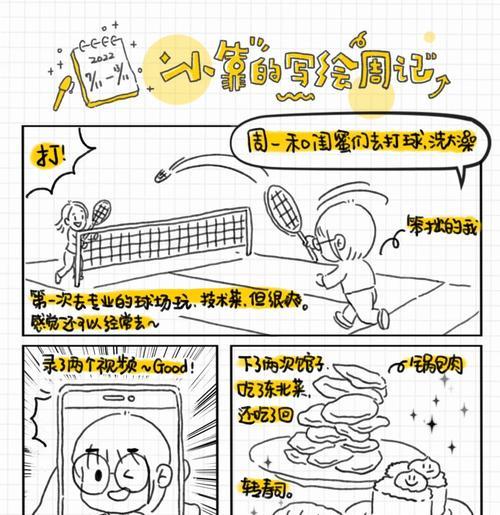 2022
7/11-17/11
小靠的写绘周记
周一和闺蜜们去打球,洗大澡
打!
笨拙的我
第一次去专业的球场玩,技术菜,但很爽。
感觉还可以经常去~
录了两个视频~Good!
下了两次馆子
吃了东北菜,
还吃了回
转寿司。
锅包肉